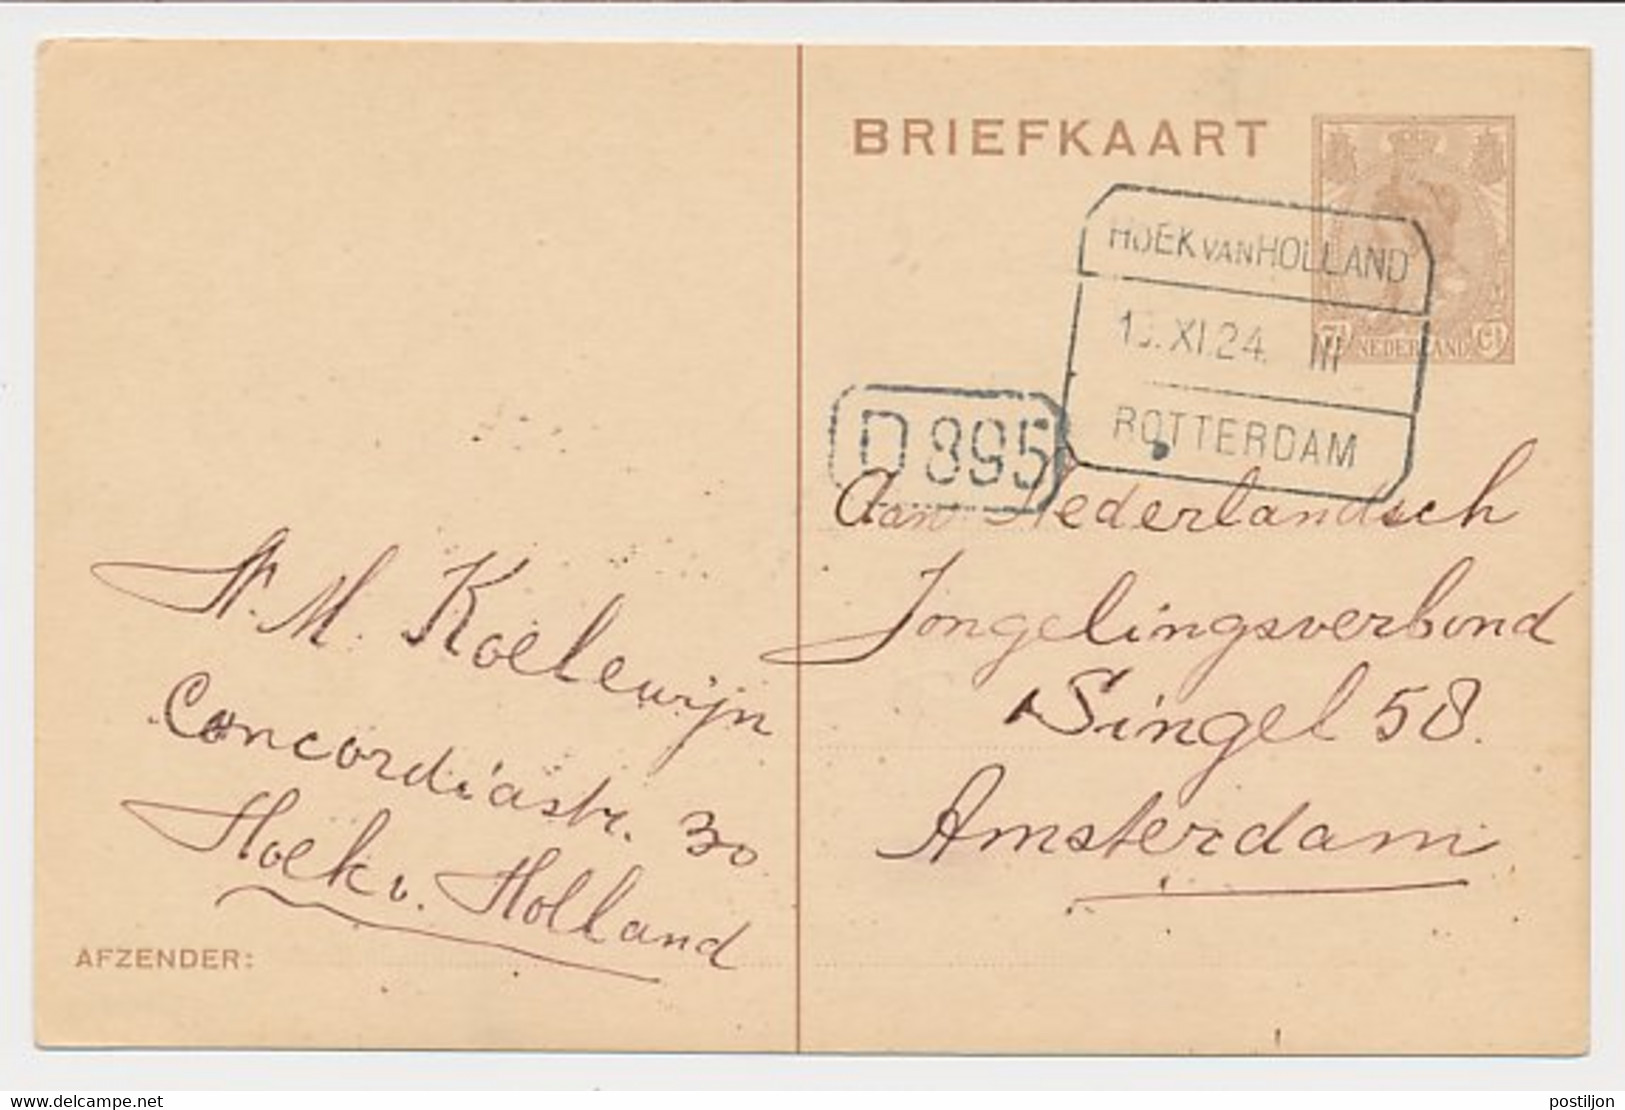 BRIEFKAART
7½ NEDERLAND Ct
HOEK VAN HOLLAND
XI.24. III
ROTTERDAM
D 895
Aan Nederlandsch
Jongelingsverbond
Singel 58.
Amsterdam
M. Koelewijn
Concordiastr. 30
Hoek v. Holland
AFZENDER:
www.delcampe.net
postiljon